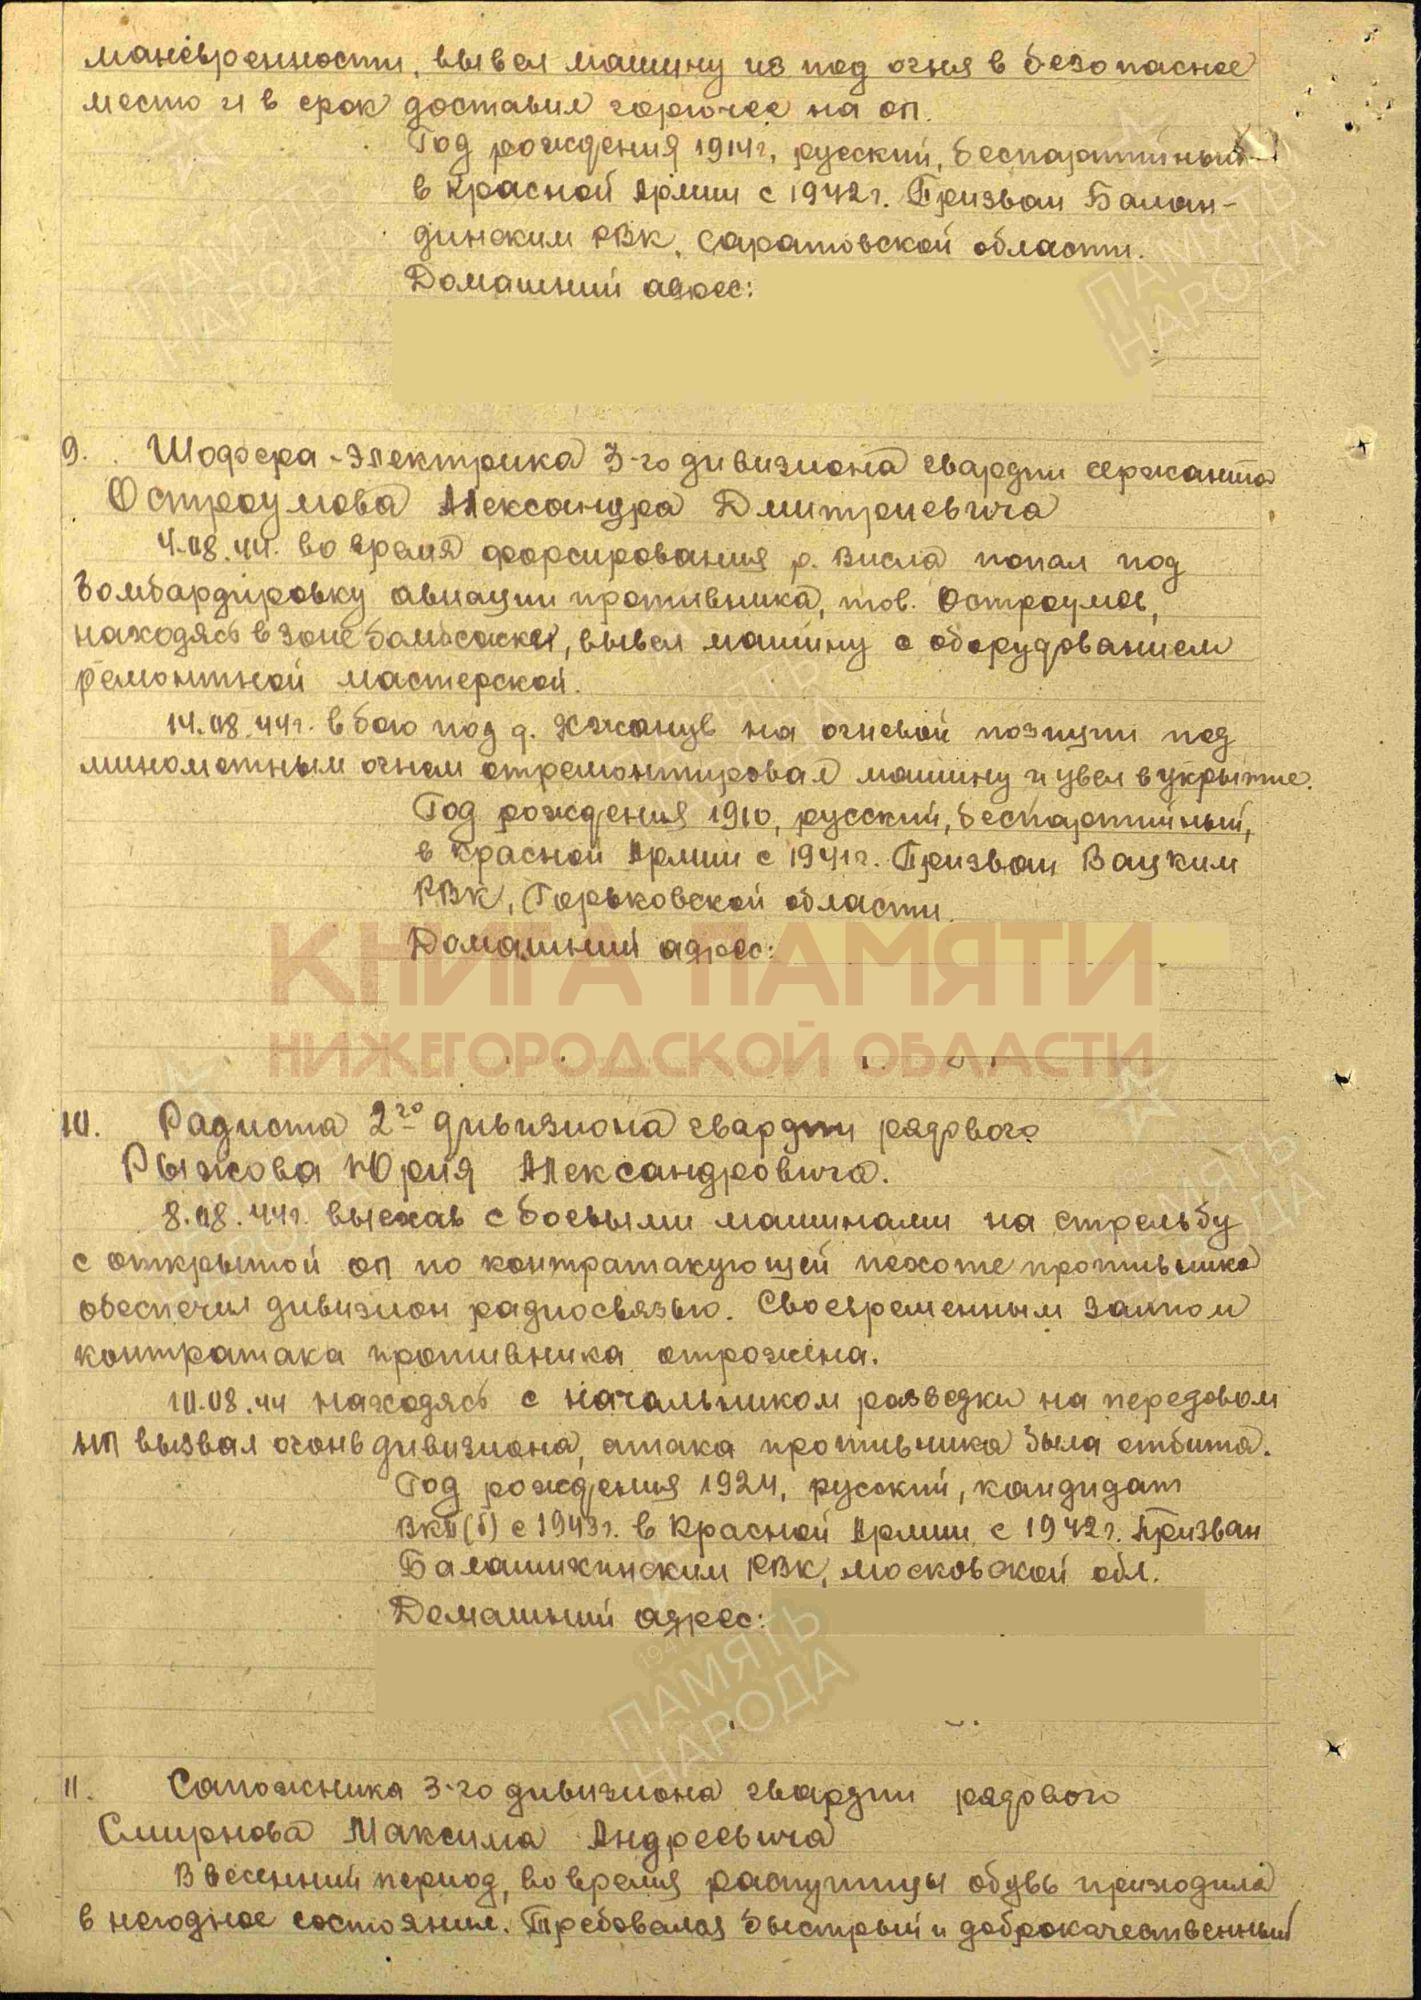 маневренности, вывел машину из под огня в безопасное
место и в срок доставил горючее на ОП.
Год рождения 1914г, русский, беспартийный
в Красной Армии с 1942г. Призван Балан-
динским РВК, Саратовской области.
Домашний адрес:
9. Шофера-электрика 3-го дивизиона гвардии сержанта
Остроумова Александра Дмитриевича
4.08.44г. во время форсирования р. Висла попал под
бомбардировку авиации противника, тов. Остроумов,
находясь в зоне бомбежки, вывел машину с оборудованием
ремонтной мастерской.
14.08.44г. в бою под д. на огневой позиции под
минометным огнем отремонтировал машину и увел в укрытие.
Год рождения 1910, русский, беспартийный,
в Красной Армии с 1941г. Призван Вацким
РВК, Горьковской области.
Домашний адрес:
КНИГА ПАМЯТИ
НИЖЕГОРОДСКОЙ ОБЛАСТИ
10. Радиста 2го дивизиона гвардии рядового
Рыжова Юрия Александровича.
8.08.44г. выехав с боевыми машинами на стрельбу
с открытой ОП по контратакующей пехоте противника
обеспечил дивизион радиосвязью. Своевременным залпом
контратака противника отрожена.
10.08.44 находясь с начальником разведки на передовом
НП вызвал огонь дивизиона, атака противника была отбита.
Год рождения 1924, русский, кандидат
ВКП(б) с 1943г. в Красной Армии с 1942г. Призван
Балашихинским РВК, Московской обл.
Домашний адрес:
ПАМЯТЬ
НАРОДА
11. Сапожника 3-го дивизиона гвардии рядового
Смирнова Максима Андреевича
В весенний период, во время распутицы обувь приходила
в негодное состояние. Требовался быстрый и доброкачественный